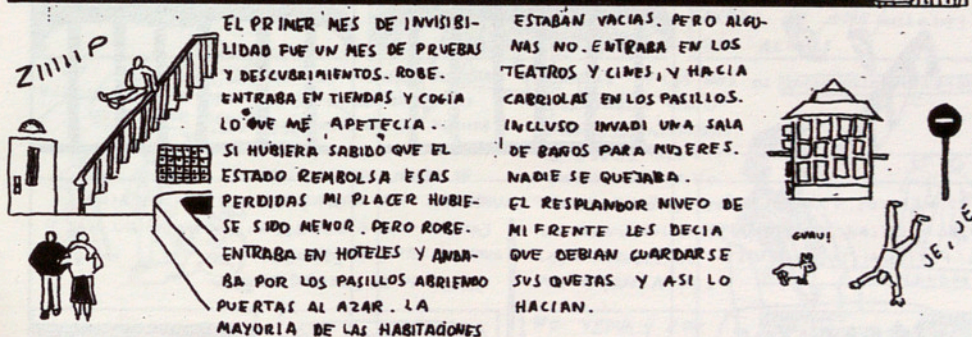 ZIIIIP
EL PRIMER MES DE INVISIBI-
LIDAD FUE UN MES DE PRUEBAS
Y DESCUBRIMIENTOS. ROBE.
ENTRABA EN TIENDAS Y COGÍA
LO QUE ME APETECÍA.
SI HUBIERA SABIDO QUE EL
ESTADO REMBOLSA ESAS
PERDIDAS MI PLACER HUBIE-
SE SIDO MENOR. PERO ROBE.
ENTRABA EN HOTELES Y ANDA-
BA POR LOS PASILLOS ABRIENDO
PUERTAS AL AZAR. LA
MAYORIA DE LAS HABITACIONES
ESTABAN VACIAS. PERO ALGU-
NAS NO. ENTRABA EN LOS
TEATROS Y CINES, Y HACIA
CABRIOLAS EN LOS PASILLOS.
INCLUSO INVADI UNA SALA
DE BAÑOS PARA MUJERES.
NADIE SE QUEJABA.
EL RESPLANDOR NIVEO DE
MI FRENTE LES DECIA
QUE DEBIAN GUARDARSE
SUS QUEJAS Y ASI LO
HACIAN.
GUAU!
JE, JE